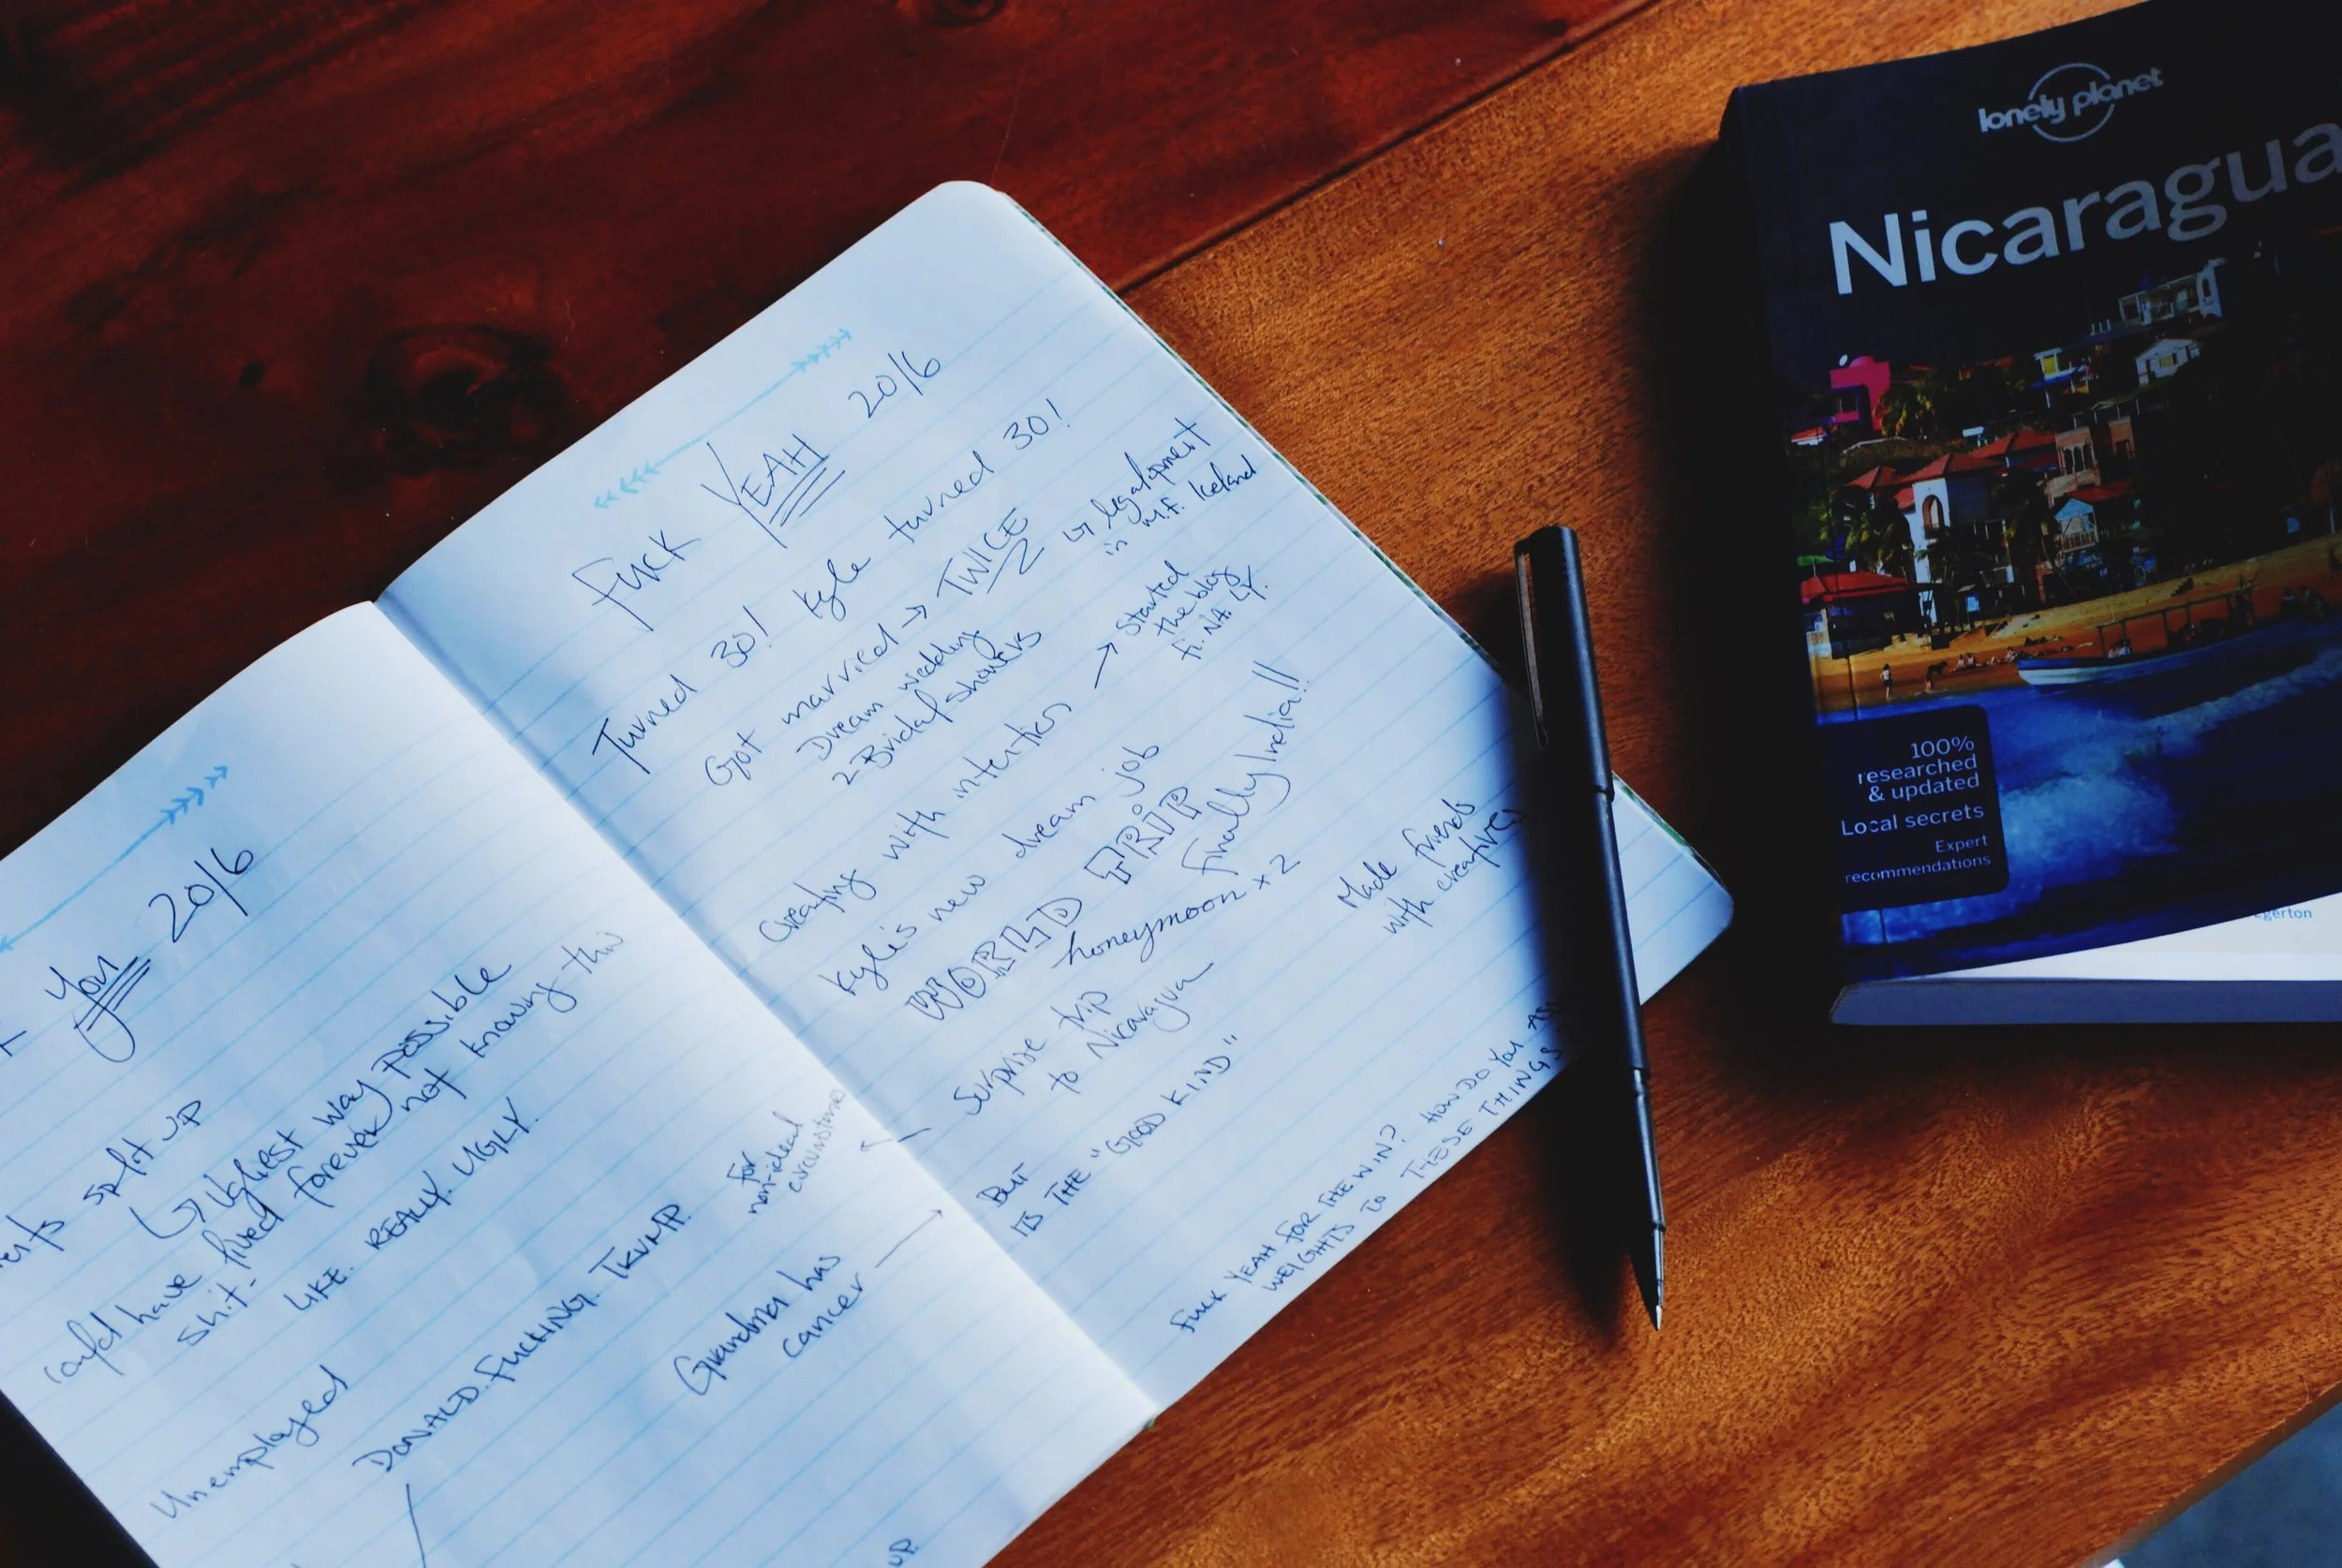 You 2016
split up
Ugliest way possible
could have lived forever not knowing this
shit.
LIKE. REALLY. UGLY.
Unemployed
DONALD. FUCKING. TRUMP.
for
non-ideal
circumstance
Grandma has
cancer
UP.
FUCK YEAH 2016
Turned 30! Kyle turned 30!
Got married → TWICE
↳ legal elopment
in M.F. Iceland
Dream wedding
2 Bridal showers
Creating with intention → Started
the blog
Fi. NA. LY.
Kyle's new dream job
WORLD TRIP
Finally India!!
honeymoon x 2
Surprise trip
to Nicaragua
Made friends
with creatives
But
ITS THE "GOOD KIND"
FUCK YEAH FOR THE WIN? HOW DO YOU
WEIGHTS TO THESE THINGS
lonely planet
Nicaragua
100%
researched
& updated
Local secrets
Expert
recommendations
egerton